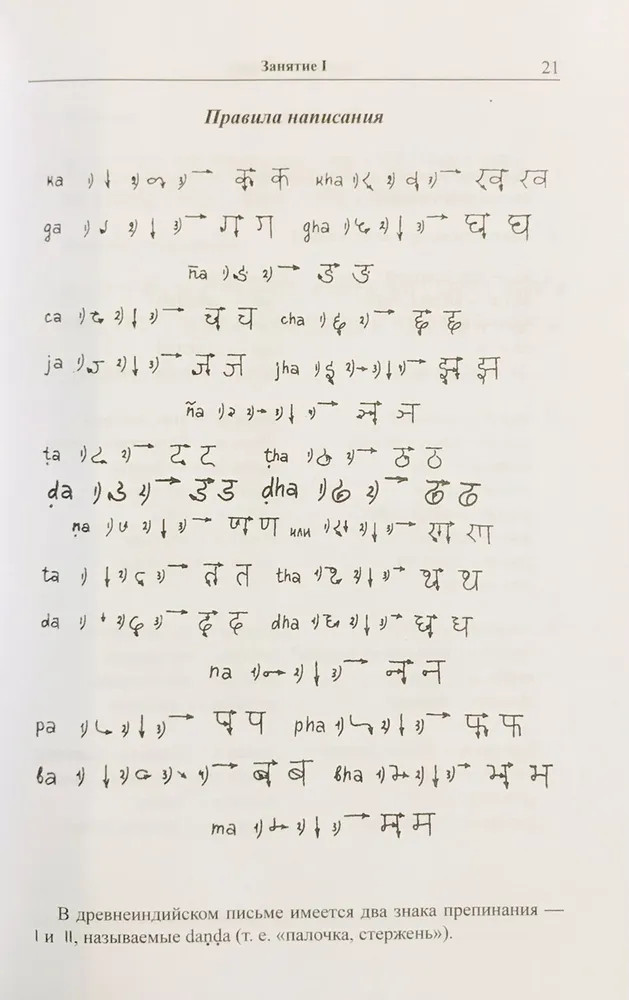 Занятие I 21
Правила написания
ka 1) ↓ 2) 3) → क क kha 1) 2) 3) → ख ख
ga 1) 2) ↓ 3) → ग ग gha 1) 2) ↓ 3) → घ घ
ña 1) 2) → ङ ङ
ca 1) 2) ↓ 3) → च च cha 1) 2) → छ छ
ja 1) 2) ↓ 3) → ज ज jha 1) 2) → 3) ↓ 4) → झ झ
ña 1) 2) → 3) ↓ 4) → ञ ञ
ṭa 1) 2) → ट ट ṭha 1) 2) → ठ ठ
ḍa 1) 2) → ड ड ḍha 1) 2) → ढ ढ
ṇa 1) 2) ↓ 3) → ण ण или 1) 2) ↓ 3) →
ta 1) ↓ 2) 3) → त त tha 1) 2) ↓ 3) → थ थ
da 1) ↓ 2) 3) → द द dha 1) 2) ↓ 3) → ध ध
na 1) 2) ↓ 3) → न न
pa 1) 2) ↓ 3) → प प pha 1) 2) ↓ 3) → फ फ
ba 1) ↓ 2) 3) 4) → ब ब bha 1) 2) ↓ 3) → भ भ
ma 1) 2) ↓ 3) → म म
В древнеиндийском письме имеется два знака препинания —
I и II, называемые daṇḍa (т. е. «палочка, стержень»).